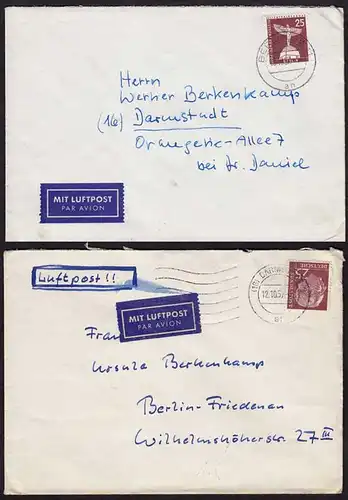 25
Herrn
Werner Berkenkamp
(16) Darmstadt
Orangerie-Allee 7
bei Dr. Daniel
MIT LUFTPOST
PAR AVION
Luftpost!!
MIT LUFTPOST
PAR AVION
25
DEUTSCHE
Frau
Ursula Berkenkamp
Berlin-Friedenau
Wilhelmshöherstr. 27 III